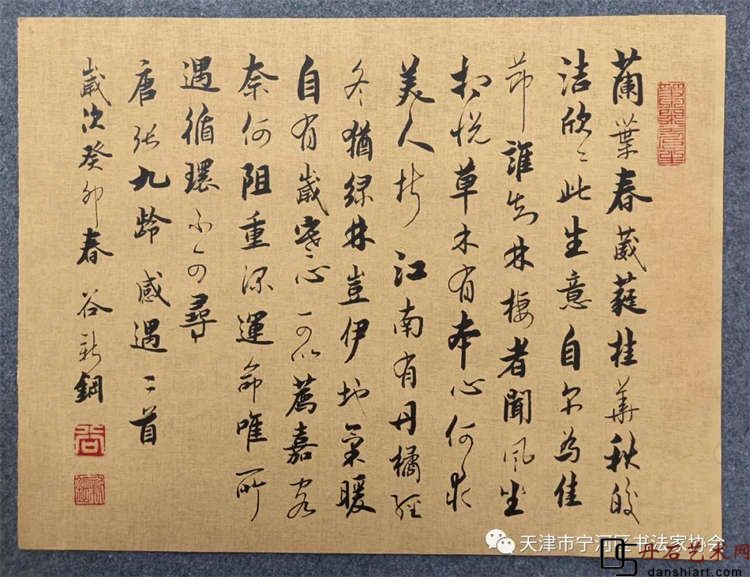 蘭葉春葳蕤桂華秋皎
洁欣〻此生意自尔為佳
莭誰知林棲者聞風坐
相悦草木有本心何求
美人折 江南有丹橘經
冬猶绿林豈伊地氣暖
自有歲寒心可以薦嘉客
奈何阻重深運命唯所
遇循環不可尋
唐张九龄感遇二首
歲次癸卯春 谷新鋼
谷
天津市宁河区书法家协会
丹石艺术网
danshiart.com